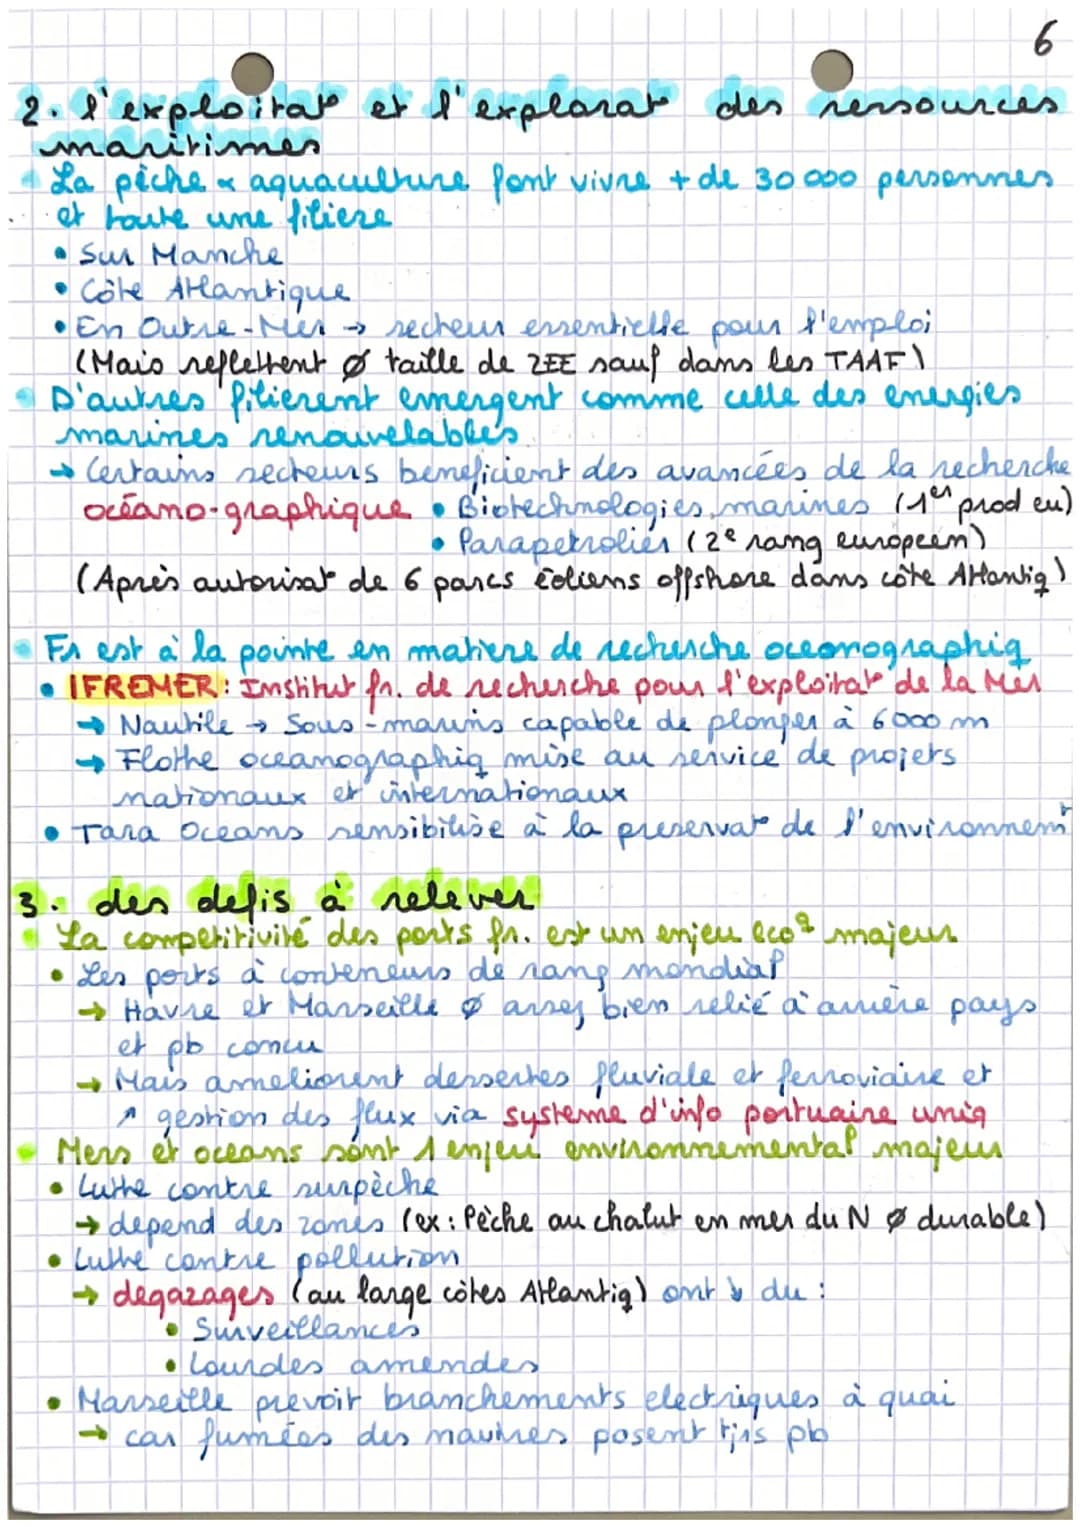 6
2. l'exploitat° et l'explorat° des ressources
maritimes
La pêche & aquaculture font vivre + de 30 000 personnes
et toute une filiere
• Sur Manche
• Côte Atlantique
• En Outre-Mer → secteur essentielle pour l'emploi
(Mais reflettent ø taille de ZEE sauf dans les TAAF)
D'autres filierent emergent comme celle des energies
marines renouvelables
→ Certains secteurs beneficient des avancées de la recherche
océano-graphique • Biotechnologies marines (1er prod eu)
• Parapetrolier (2e rang européen)
(Après autorisat° de 6 parcs éoliens offshore dans côte Atlantiq)
Fr est à la pointe en matiere de recherche oceanographiq
• IFREMER : Institut fr. de recherche pour l'exploitat° de la Mer
→ Nautile → Sous-marins capable de plonger à 6000 m
→ Flotte oceanographiq mise au service de projets
nationaux et internationaux
• Tara Oceans sensibilise à la preservat° de l'environnemt
3. des defis à relever
La competitivité des ports fr. est un enjeu ecoq majeur
• Les ports à conteneurs de rang mondial
→ Havre et Marseille ø assez bien relié à arrière pays
et pb concu
→ Mais ameliorent dessertes fluviale et ferroviaire et
↗ gestion des flux via systeme d'info portuaire uniq
Mers et oceans sont 1 enjeu environnemental majeur
• Lutte contre surpèche
→ depend des zones (ex : Pèche au chalut en mer du N ø durable)
• Lutte contre pollution
→ degazages (au large côtes Atlantiq) ont ↓ du :
• Surveillances
• Lourdes amendes
• Marseille prevoit branchements electriques à quai
→ car fumées des navires posent tjrs pb